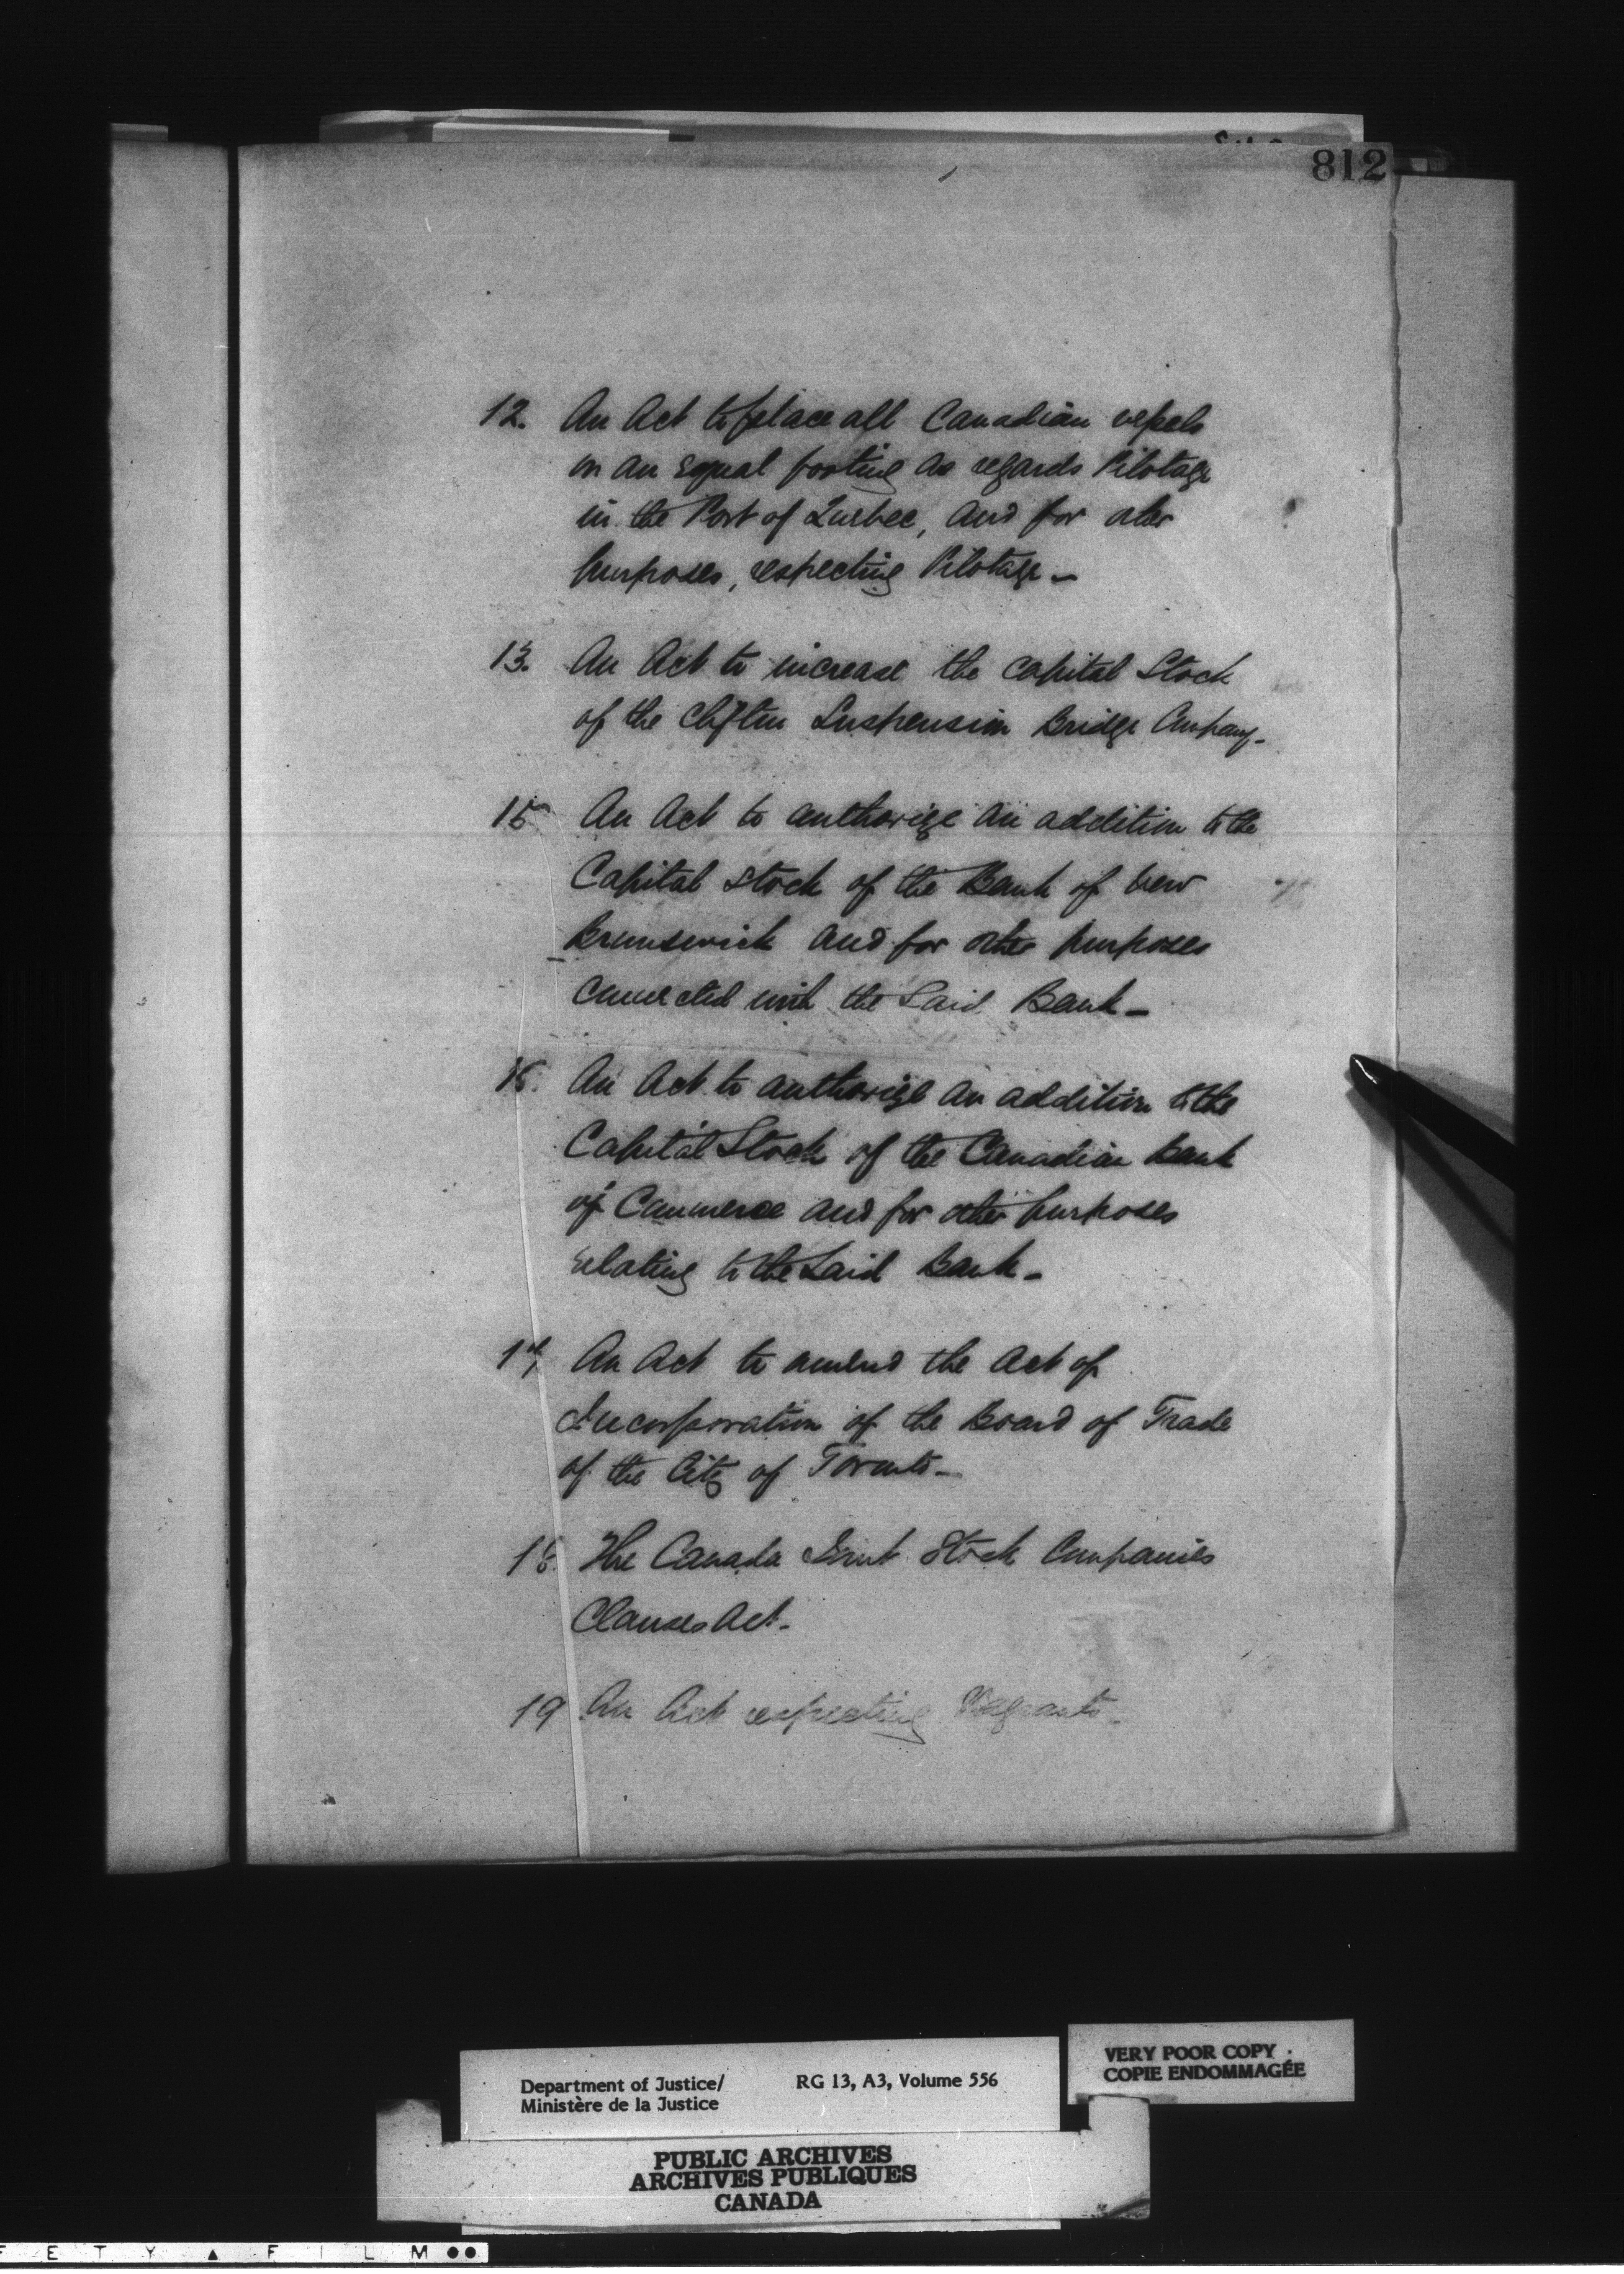 812
12. An Act to place all Canadian vessels
on an Equal footing as regards Pilotage
in the Port of Quebec, and for other
purposes, respecting Pilotage—
13. An Act to increase the Capital Stock
of the Clifton Suspension Bridge Company—
15 An Act to authorize an addition to the
Capital Stock of the Bank of New
Brunswick and for other purposes
connected with the Said Bank—
An Act to authorize an addition to the
Capital Stock of the Canadian Bank
of Commerce and for other purposes
relating to the Said Bank—
17 An Act to amend the Act of
Incorporation of the Board of Trade
of the City of Toronto—
18. The Canada Joint Stock Companies
Clauses Act—
19 An Act respecting Vagrants—
Department of Justice/ RG 13, A3, Volume 556
Ministère de la Justice
VERY POOR COPY
COPIE ENDOMMAGÉE
PUBLIC ARCHIVES
ARCHIVES PUBLIQUES
CANADA
F E T Y ▲ F I L M ●●